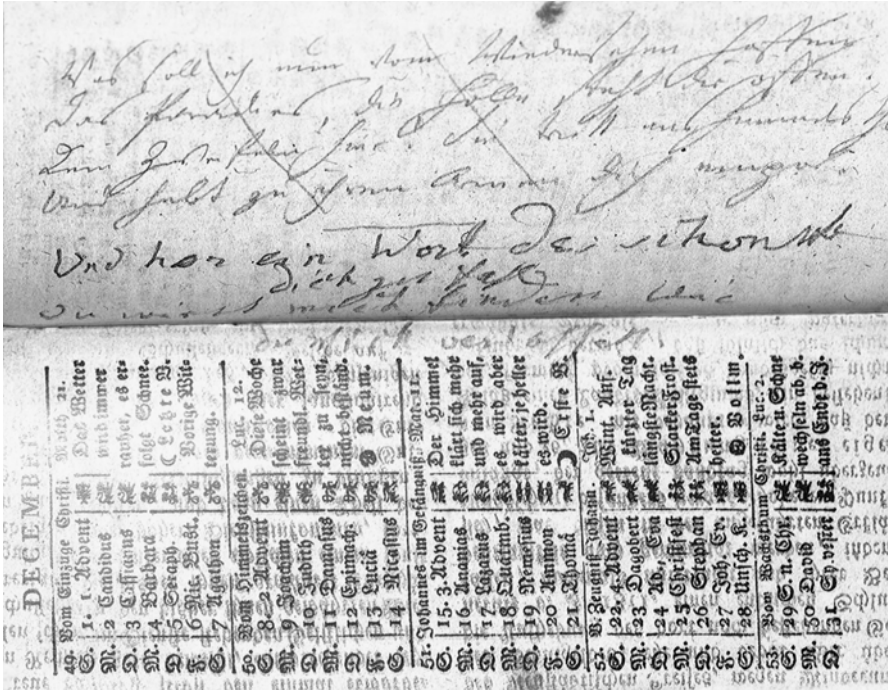 Was soll ich nun vom Wiedersehen hoffen
Das Paradies, die Hölle steht dir offen.
Kein Zweifeln hier! Sie tritt ans
Und hebt zu ihren Armen dich empor.
Und hor ein Wort des schon
dich
Du wirst mich finden wie
DECEMBER
49. Vom Einzuge Christi. Math. 21.
S. 1. 1. Advent Das Wetter
M. 2 Candidus wird immer
D. 3 Cassianus rauher, es er-
M. 4 Barbara folgt Schnee.
D. 5 Seraph. Letzte V.
F. 6 Nic. Bußt. Vorige Wit-
S. 7 Agathon terung.
50. Vom Himmelszeichen. Luc. 12.
S. 8 2. Advent Diese Woche
M. 9 Joachim scheint zwar
D. 10 Judith freundl. Wet-
M. 11 Damasius ter zu seyn,
D. 12 Epimach. nicht beständ.
F. 13 Luciä Neum.
S. 14 Nicasius
51. Johannes im Gefängniß. Mat. 11.
S. 15. 3. Advent Der Himmel
M. 16 Ananias klärt sich mehr
D. 17 Lazarus und mehr auf,
M. 18 Quatemb. es wird aber
D. 19 Nemesius kälter, je heller
F. 20 Ammon es wird.
S. 21. Thomä Erste V.
52. V. Zeugniß Johann. Joh. 1.
S. 22. 4. Advent Wint. Anf.
M. 23. Dagobert kürzter Tag
D. 24 Ad., Eva längste Nacht.
M. 25 Christfest Starker Frost.
D. 26. Stephan Am Tage stets
F. 27. Joh. Ev. heiter.
S. 28. Unsch. K. Vollm.
53. Vom Wachsthum Christi. Luc. 2.
S. 29 S. n. Chr. Kälte u. Schne
M. 30 David wechseln ab, b.
D. 31. Sylvester ans Ende d. J.